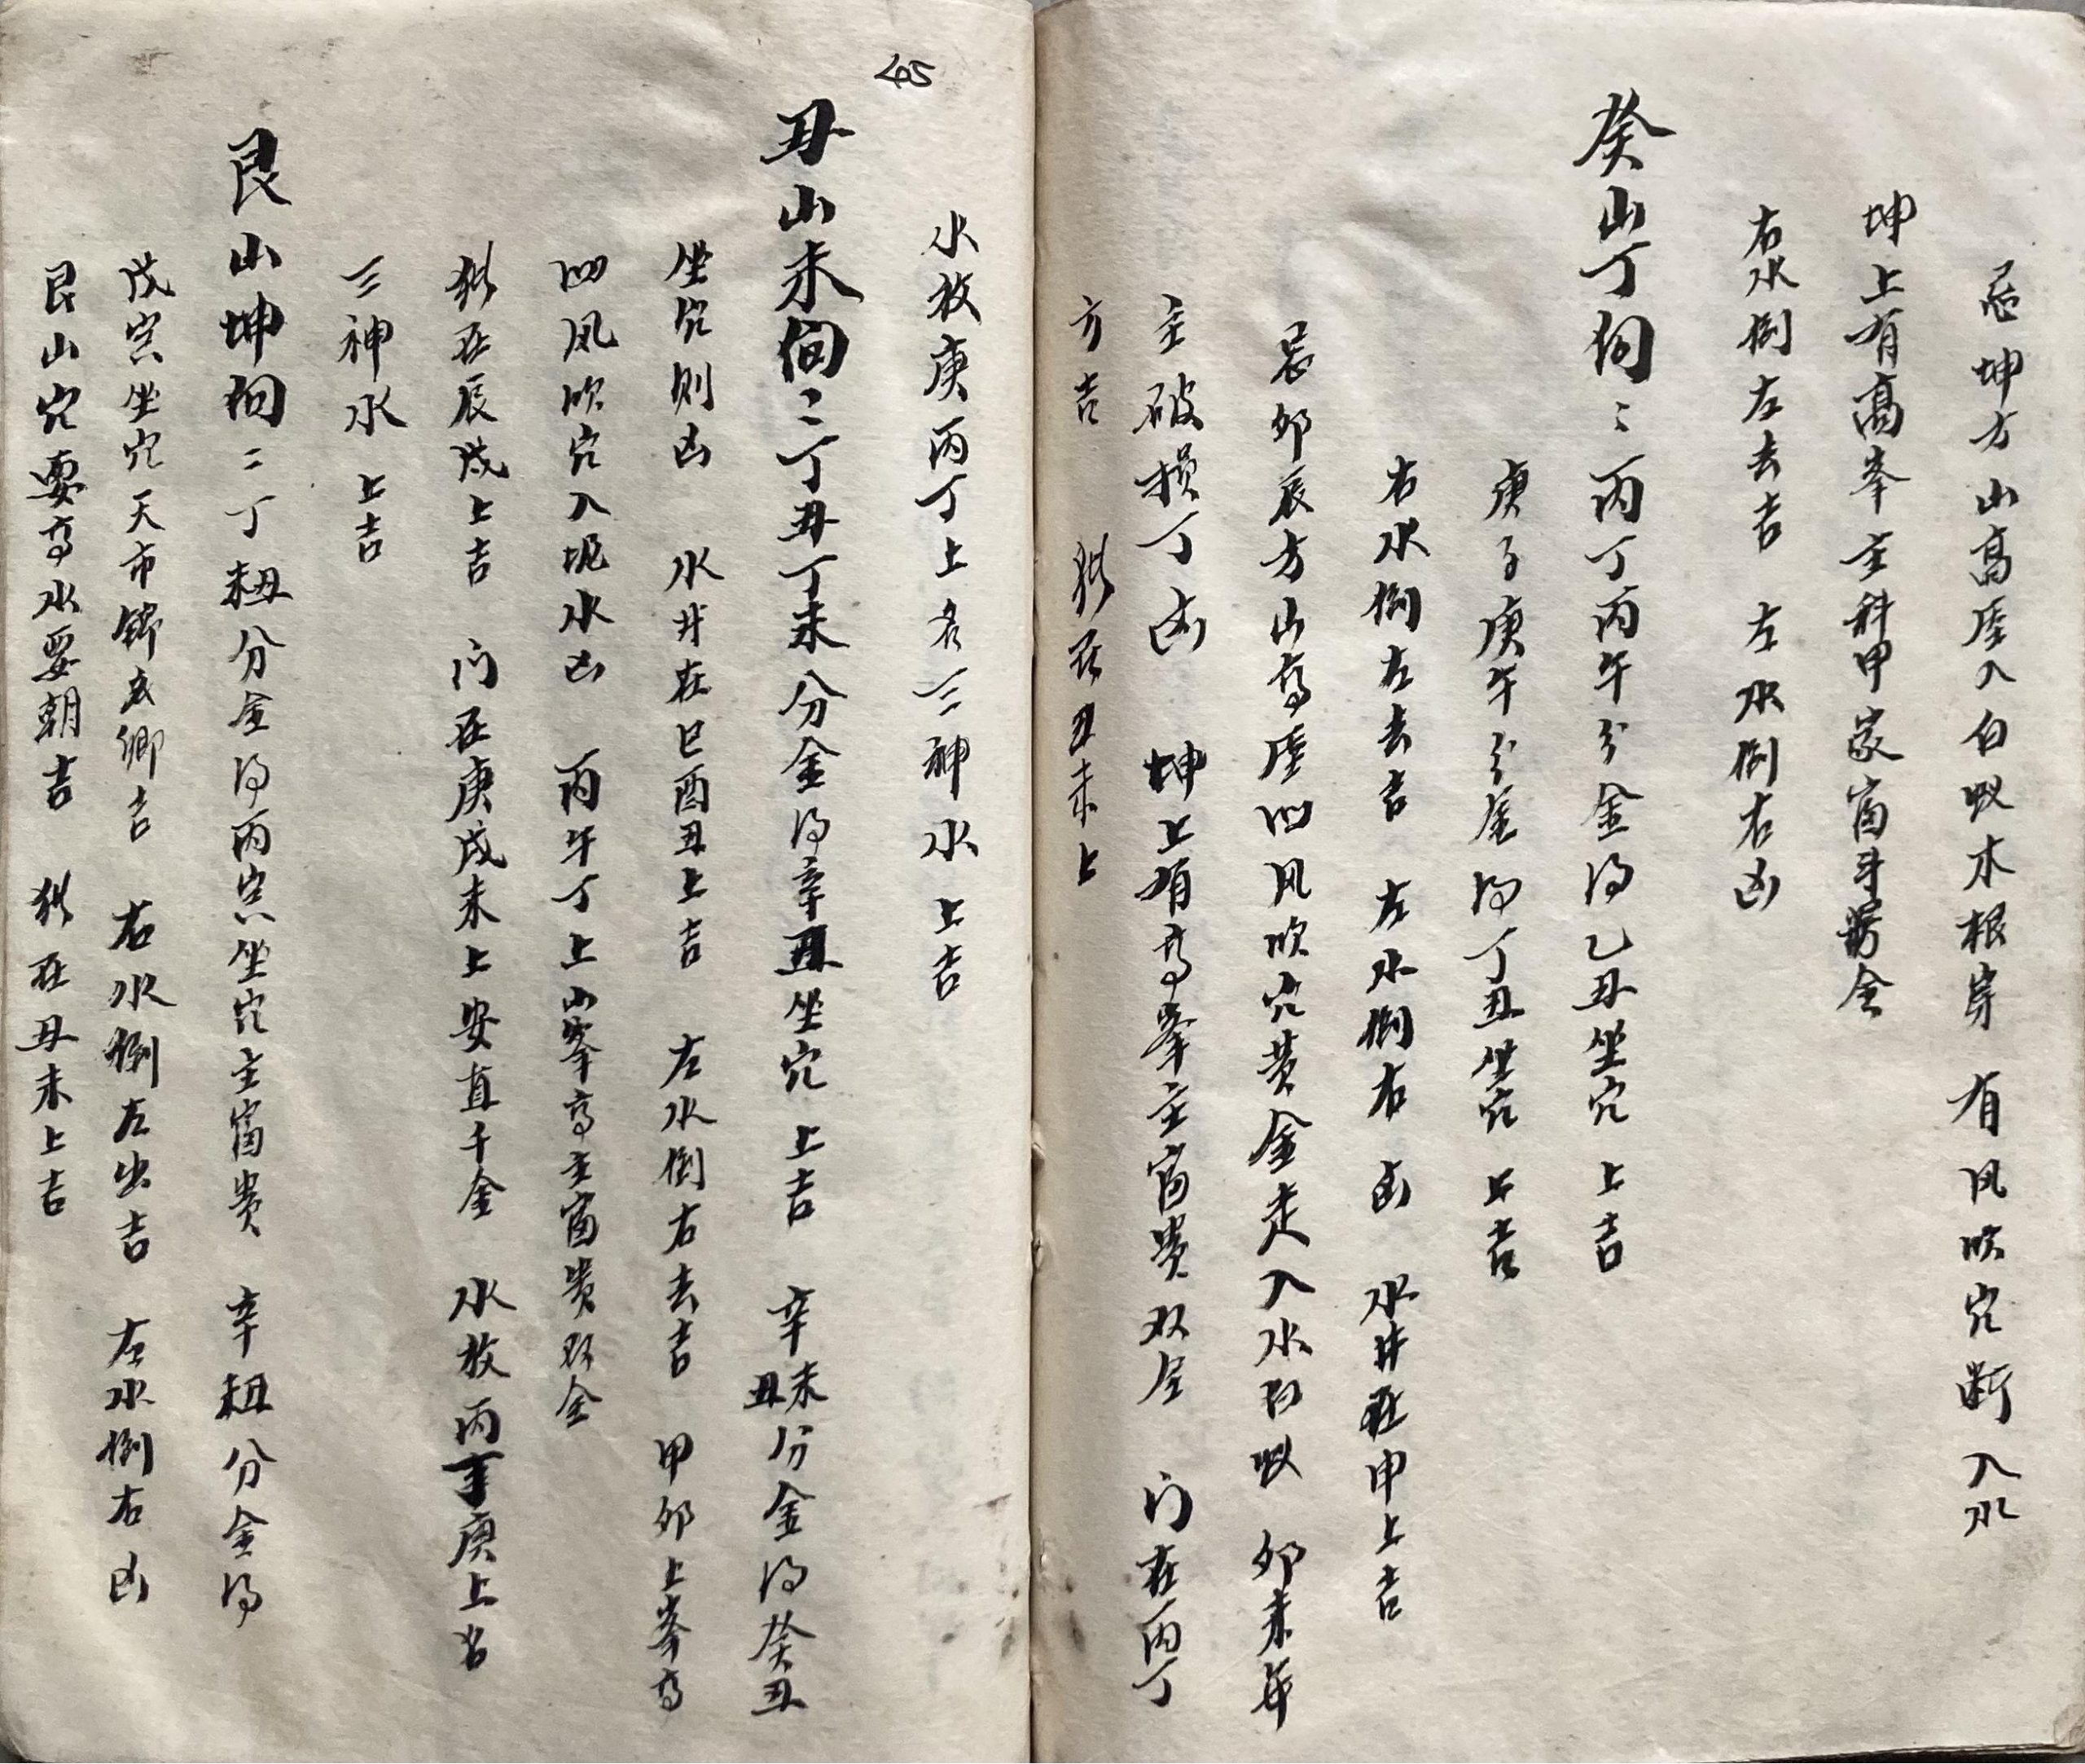 忌坤方山高壓入白蚁木根穿 有风吹穴断入水
坤上有高峯主科甲家富 全
右水倒左去吉 左水倒右凶
癸山丁向〻丙丁丙午分金得乙丑坐穴 上吉
庚子庚午分金得丁丑坐穴 上吉
右水倒左去吉 左水倒右 凶 水井在申上吉
忌卯辰方山高壓四风吹穴黄金走入水白蚁 卯未年
主破损丁凶 坤上有高峯主富贵双全 门在丙丁
方吉 在丑未上
45
水放庚丙丁上名三神水上吉
丑山未向〻丁丑丁未分金得辛丑坐穴 上吉 辛未丑分金得癸丑
坐穴则凶 水井在巳酉丑上吉 左水倒右去吉 甲卯上峯高
四风吹穴入坭水凶 丙午丁上山峯高主富贵双全
在辰戌上吉 门在庚戌未上安直千金 水放丙丁庚上名
三神水上吉
艮山坤向〻丁丑未分金得丙寅坐穴主富贵 辛丑未分金得
戊寅坐穴天市 卿吉 右水倒左出吉 左水倒右凶
艮山穴要高水要朝吉 在丑未上吉